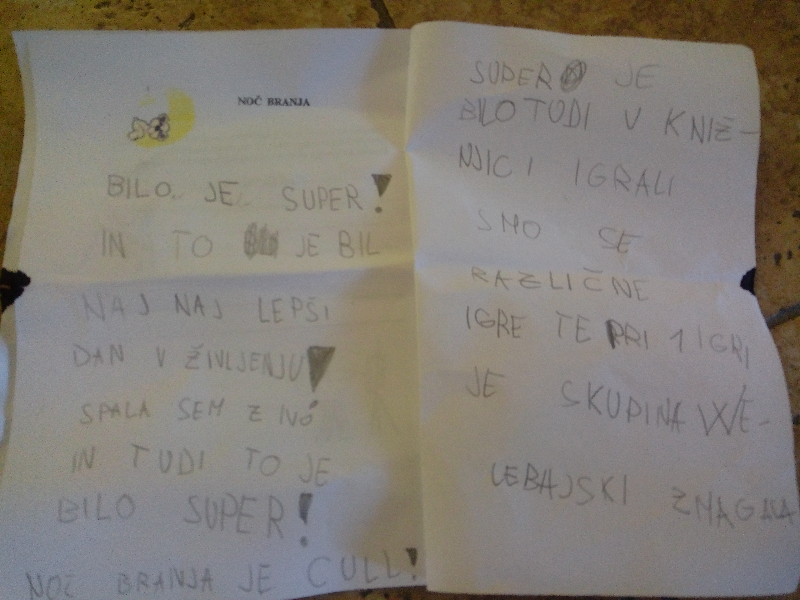 NOČ BRANJA
BILO JE SUPER!
IN TO JE BIL
NAJ NAJ LEPŠI
DAN V ŽIVLJENJU!
SPALA SEM Z IVO
IN TUDI TO JE
BILO SUPER!
NOČ BRANJA JE CULL!
SUPER JE
BILO TUDI V KNIŽ-
NJICI IGRALI
SMO SE
RAZLIČNE
IGRE TE PRI 1 IGRI
JE SKUPINA WE-
LEBAJSKI ZMAGALA